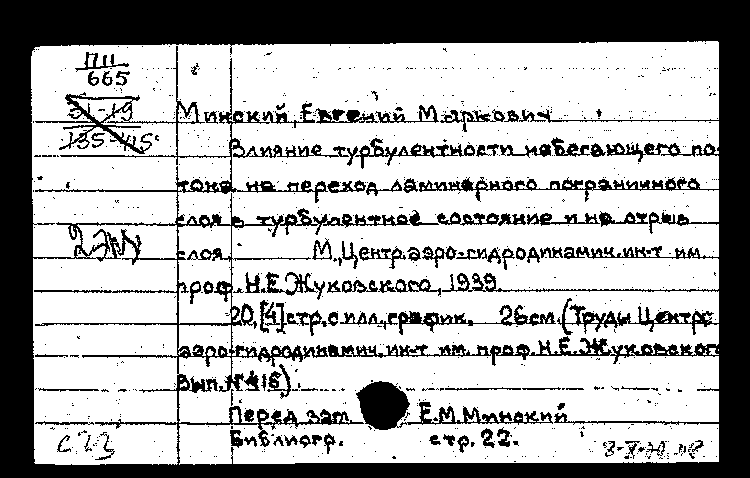 П11
665
31-19
135-415
Минский, Евгений Маркович
Влияние турбулентности набегающего по-
тока на переход ламинарного пограничного
слоя в турбулентное состояние и на отрыв
слоя. М., Центр. аэро-гидродинамич. ин-т им.
проф. Н.Е. Жуковского, 1939.
20,[4]стр. с илл., график. 26см. (Труды Центр.
аэро-гидродинамич. ин-т им. проф. Н.Е. Жуковского
Вып. №415).
Перед заг. Е.М. Минский
Библиогр. стр. 22.
с 23